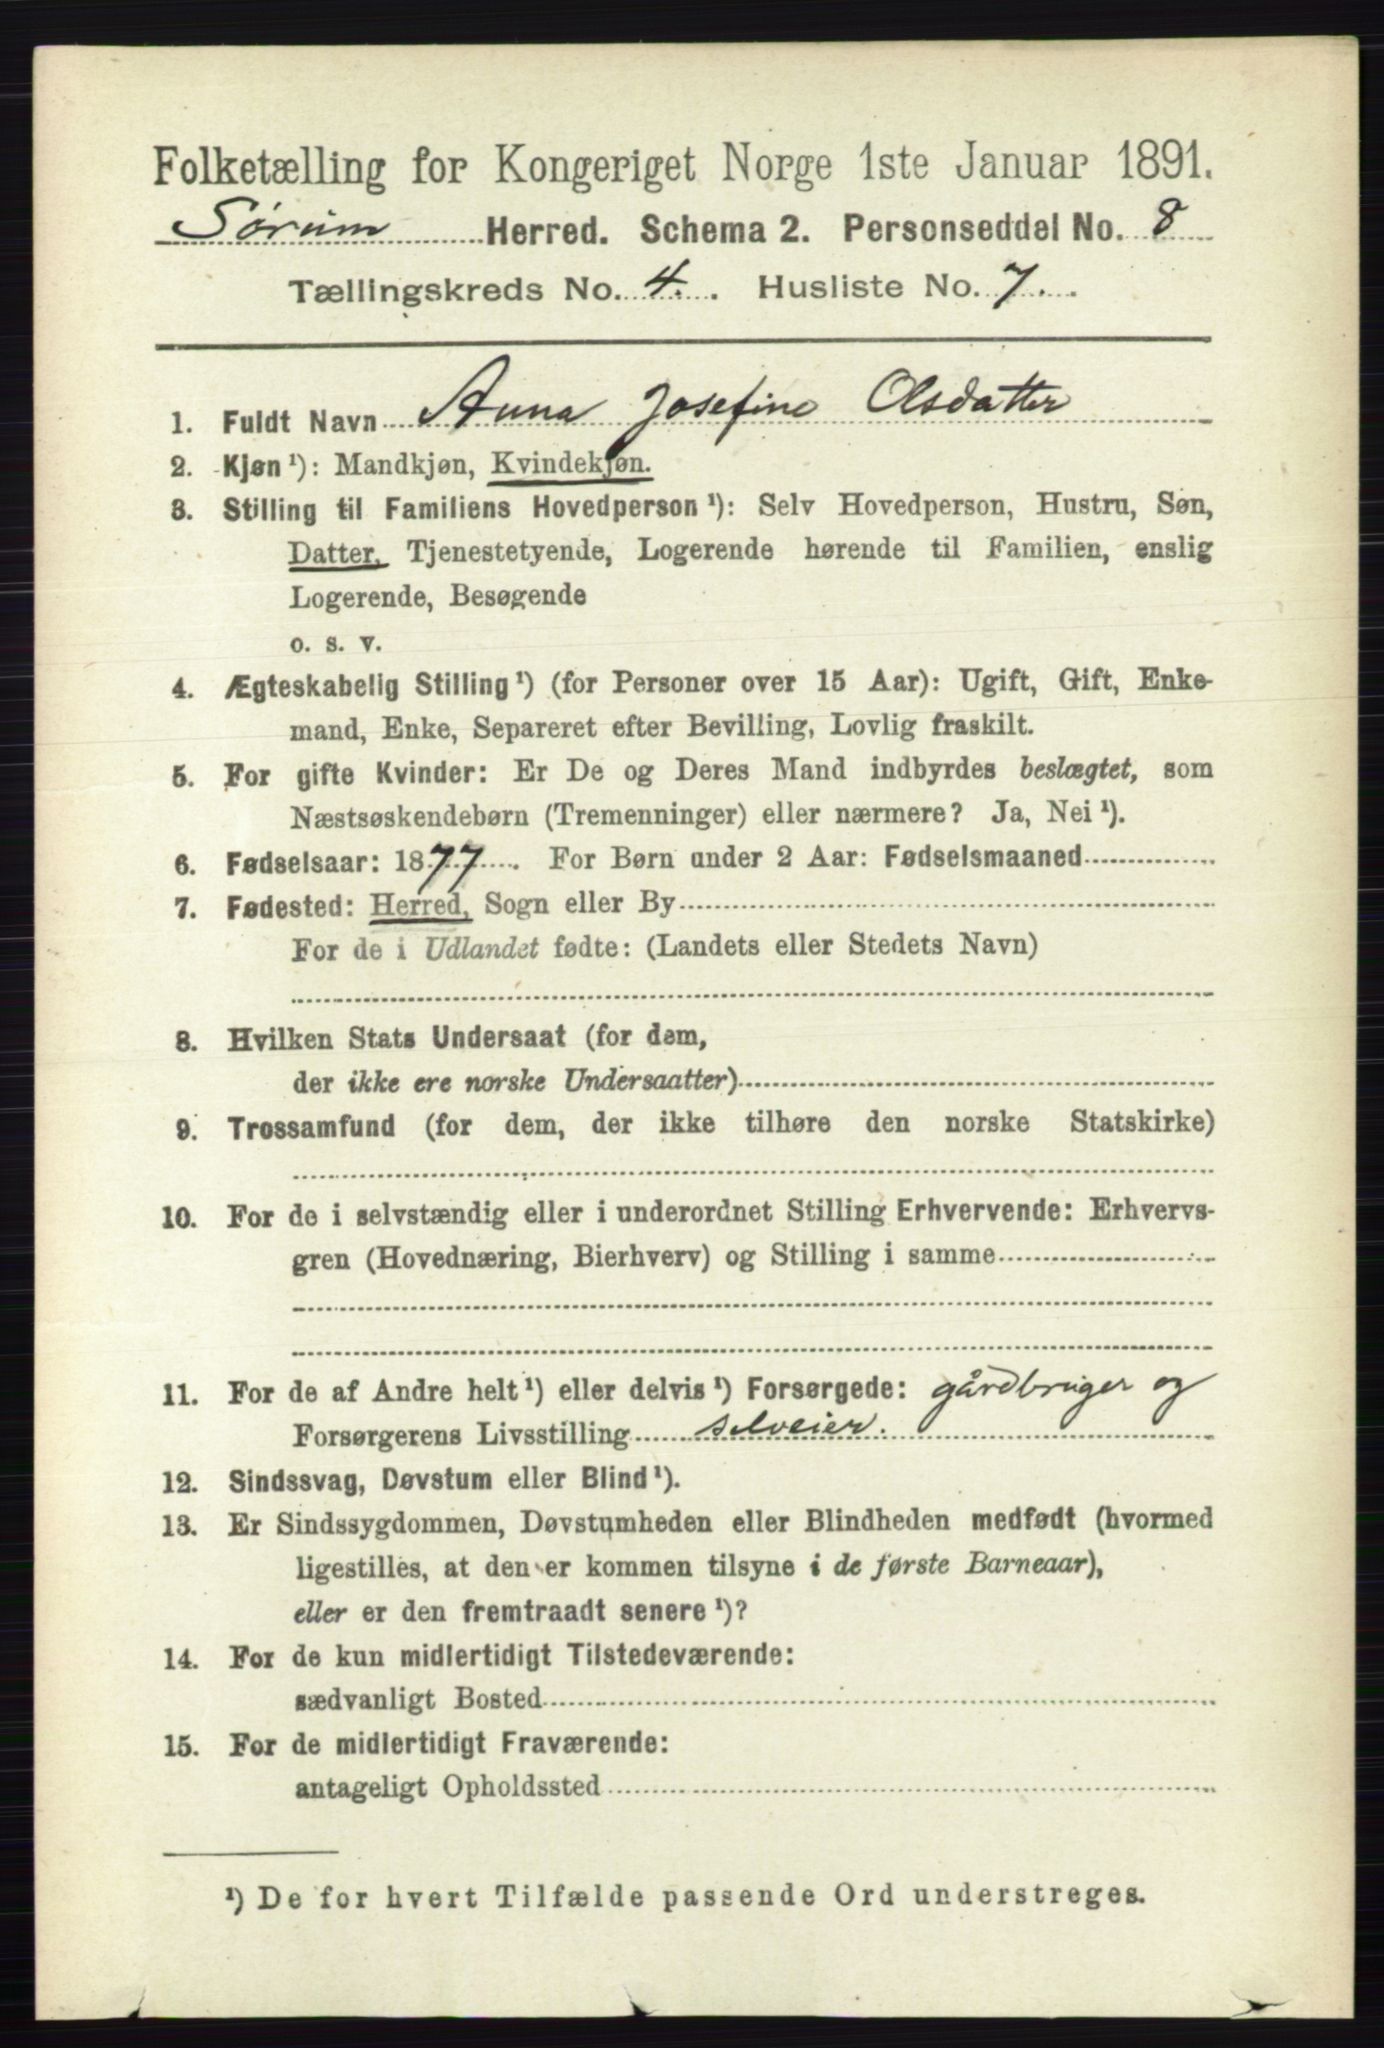 Folketælling for Kongeriget Norge 1ste Januar 1891.
Sørum Herred. Schema 2. Personseddel No. 8
Tællingskreds No. 4. Husliste No. 7.
1. Fuldt Navn Anna Josefine Olsdatter
2. Kjøn¹): Mandkjøn, Kvindekjøn.
3. Stilling til Familiens Hovedperson¹): Selv Hovedperson, Hustru, Søn,
Datter, Tjenestetyende, Logerende hørende til Familien, enslig
Logerende, Besøgende
o. s. v.
4. Ægteskabelig Stilling¹) (for Personer over 15 Aar): Ugift, Gift, Enke-
mand, Enke, Separeret efter Bevilling, Lovlig fraskilt.
5. For gifte Kvinder: Er De og Deres Mand indbyrdes beslægtet, som
Næstsøskendebørn (Tremenninger) eller nærmere? Ja, Nei¹).
6. Fødselsaar: 1877. For Børn under 2 Aar: Fødselsmaaned
7. Fødested: Herred, Sogn eller By
For de i Udlandet fødte: (Landets eller Stedets Navn)
8. Hvilken Stats Undersaat (for dem,
der ikke ere norske Undersaatter)
9. Trossamfund (for dem, der ikke tilhøre den norske Statskirke)
10. For de i selvstændig eller i underordnet Stilling Erhvervende: Erhvervs-
gren (Hovednæring, Bierhverv) og Stilling i samme
11. For de af Andre helt¹) eller delvis¹) Forsørgede: gårdbruger og
Forsørgerens Livsstilling selveier.
12. Sindssvag, Døvstum eller Blind¹).
13. Er Sindssygdommen, Døvstumheden eller Blindheden medfødt (hvormed
ligestilles, at den er kommen tilsyne i de første Barneaar),
eller er den fremtraadt senere¹)?
14. For de kun midlertidigt Tilstedeværende:
sædvanligt Bosted
15. For de midlertidigt Fraværende:
antageligt Opholdssted
¹) De for hvert Tilfælde passende Ord understreges.